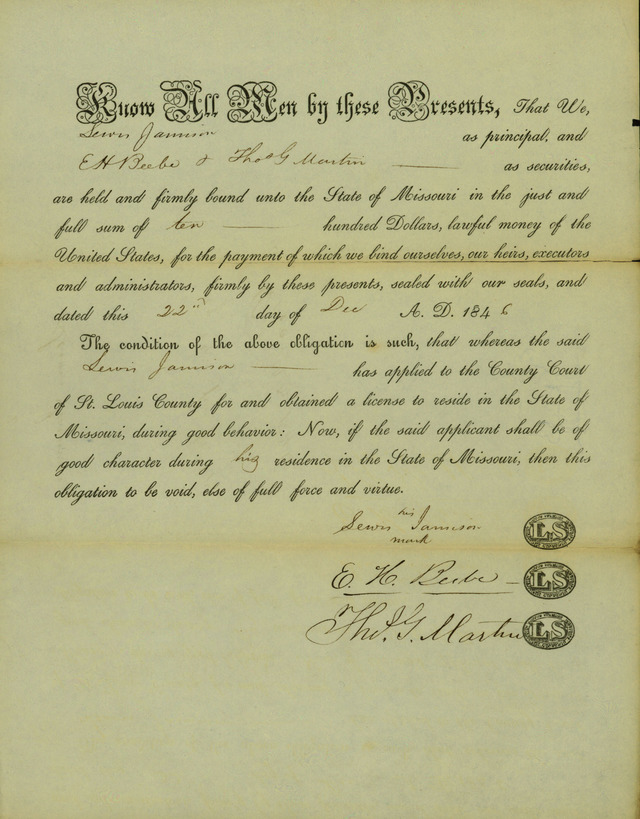 Know All Men by these Presents, That We,
Lewis Jamison as principal, and
E H Beebe & Thos G Martin as securities,
are held and firmly bound unto the State of Missouri in the just and
full sum of ten hundred Dollars, lawful money of the
United States, for the payment of which we bind ourselves, our heirs, executors
and administrators, firmly by these presents, sealed with our seals, and
dated this 22nd day of Dec A. D. 1846
The condition of the above obligation is such, that whereas the said
Lewis Jamison has applied to the County Court
of St. Louis County for and obtained a license to reside in the State of
Missouri, during good behavior: Now, if the said applicant shall be of
good character during his residence in the State of Missouri, then this
obligation to be void, else of full force and virtue.
his
Lewis Jamison LS
mark
E. H. Beebe LS
Thos. G. Martin LS